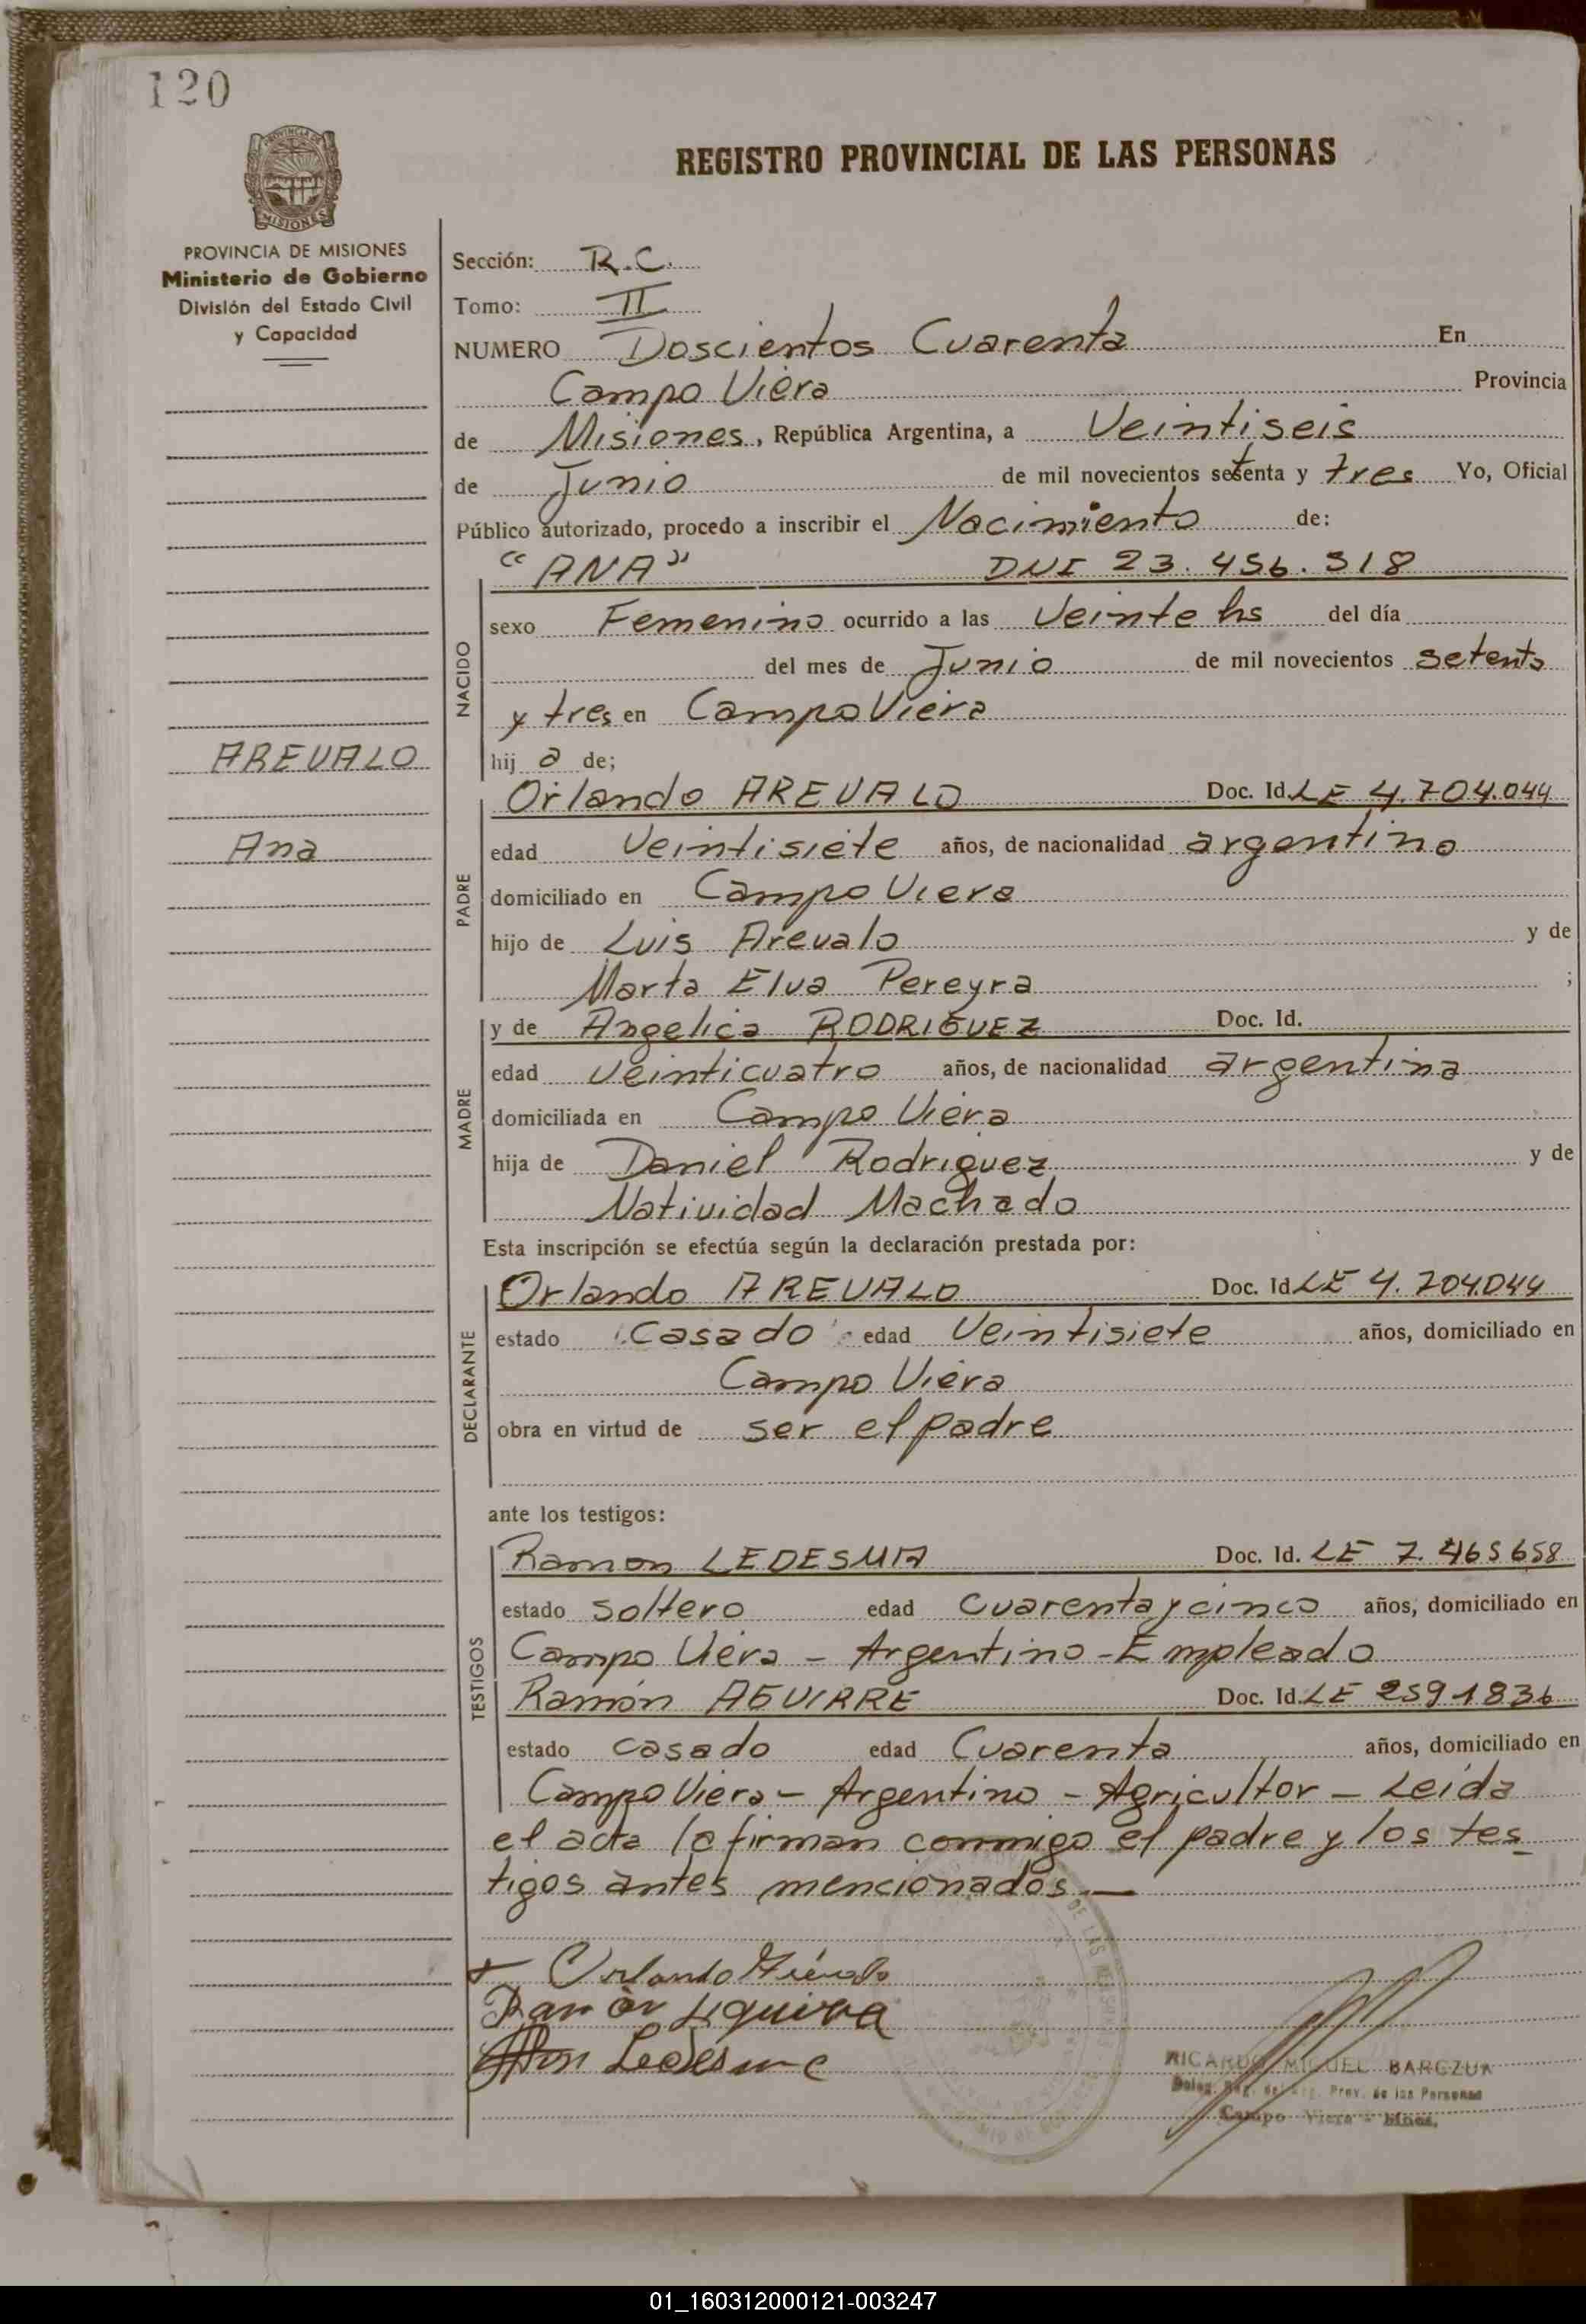 120
PROVINCIA DE MISIONES
Ministerio de Gobierno
División del Estado Civil
y Capacidad
AREVALO
Ana
REGISTRO PROVINCIAL DE LAS PERSONAS
Sección: R.C.
Tomo: II
NUMERO Doscientos Cuarenta En
Campo Viera Provincia
de Misiones, República Argentina, a Veintiseis
de Junio de mil novecientos setenta y tres Yo, Oficial
Público autorizado, procedo a inscribir el Nacimiento de:
"ANA" DNI 23.456.318
NACIDO
sexo Femenino ocurrido a las Veinte hs del día
del mes de Junio de mil novecientos setenta
y tres en Campo Viera
hij a de;
PADRE
Orlando AREVALO Doc. Id. LE 4.704.044
edad Veintisiete años, de nacionalidad argentino
domiciliado en Campo Viera
hijo de Luis Arevalo y de
Marta Elva Pereyra ;
MADRE
y de Angelica RODRIGUEZ Doc. Id.
edad veinticuatro años, de nacionalidad argentina
domiciliada en Campo Viera
hija de Daniel Rodriguez y de
Natividad Machado
Esta inscripción se efectúa según la declaración prestada por:
DECLARANTE
Orlando AREVALO Doc. Id LE 4.704.044
estado casado edad Veintisiete años, domiciliado en
Campo Viera
obra en virtud de ser el padre
ante los testigos:
TESTIGOS
Ramon LEDESMA Doc. Id. LE 7.465658
estado soltero edad Cuarenta y cinco años, domiciliado en
Campo Viera - Argentino - Empleado
Ramón AGUIRRE Doc. Id. LE 2591836
estado casado edad Cuarenta años, domiciliado en
Campo Viera - Argentino - Agricultor - Leída
el acta la firman conmigo el padre y los tes
tigos antes mencionados.—
Orlando Arévalo
Ramón
Ledesma
RICARDO MIGUEL BARCZUK
Prov. de las Personas
Campo Viera - Mnes.
01_160312000121-003247